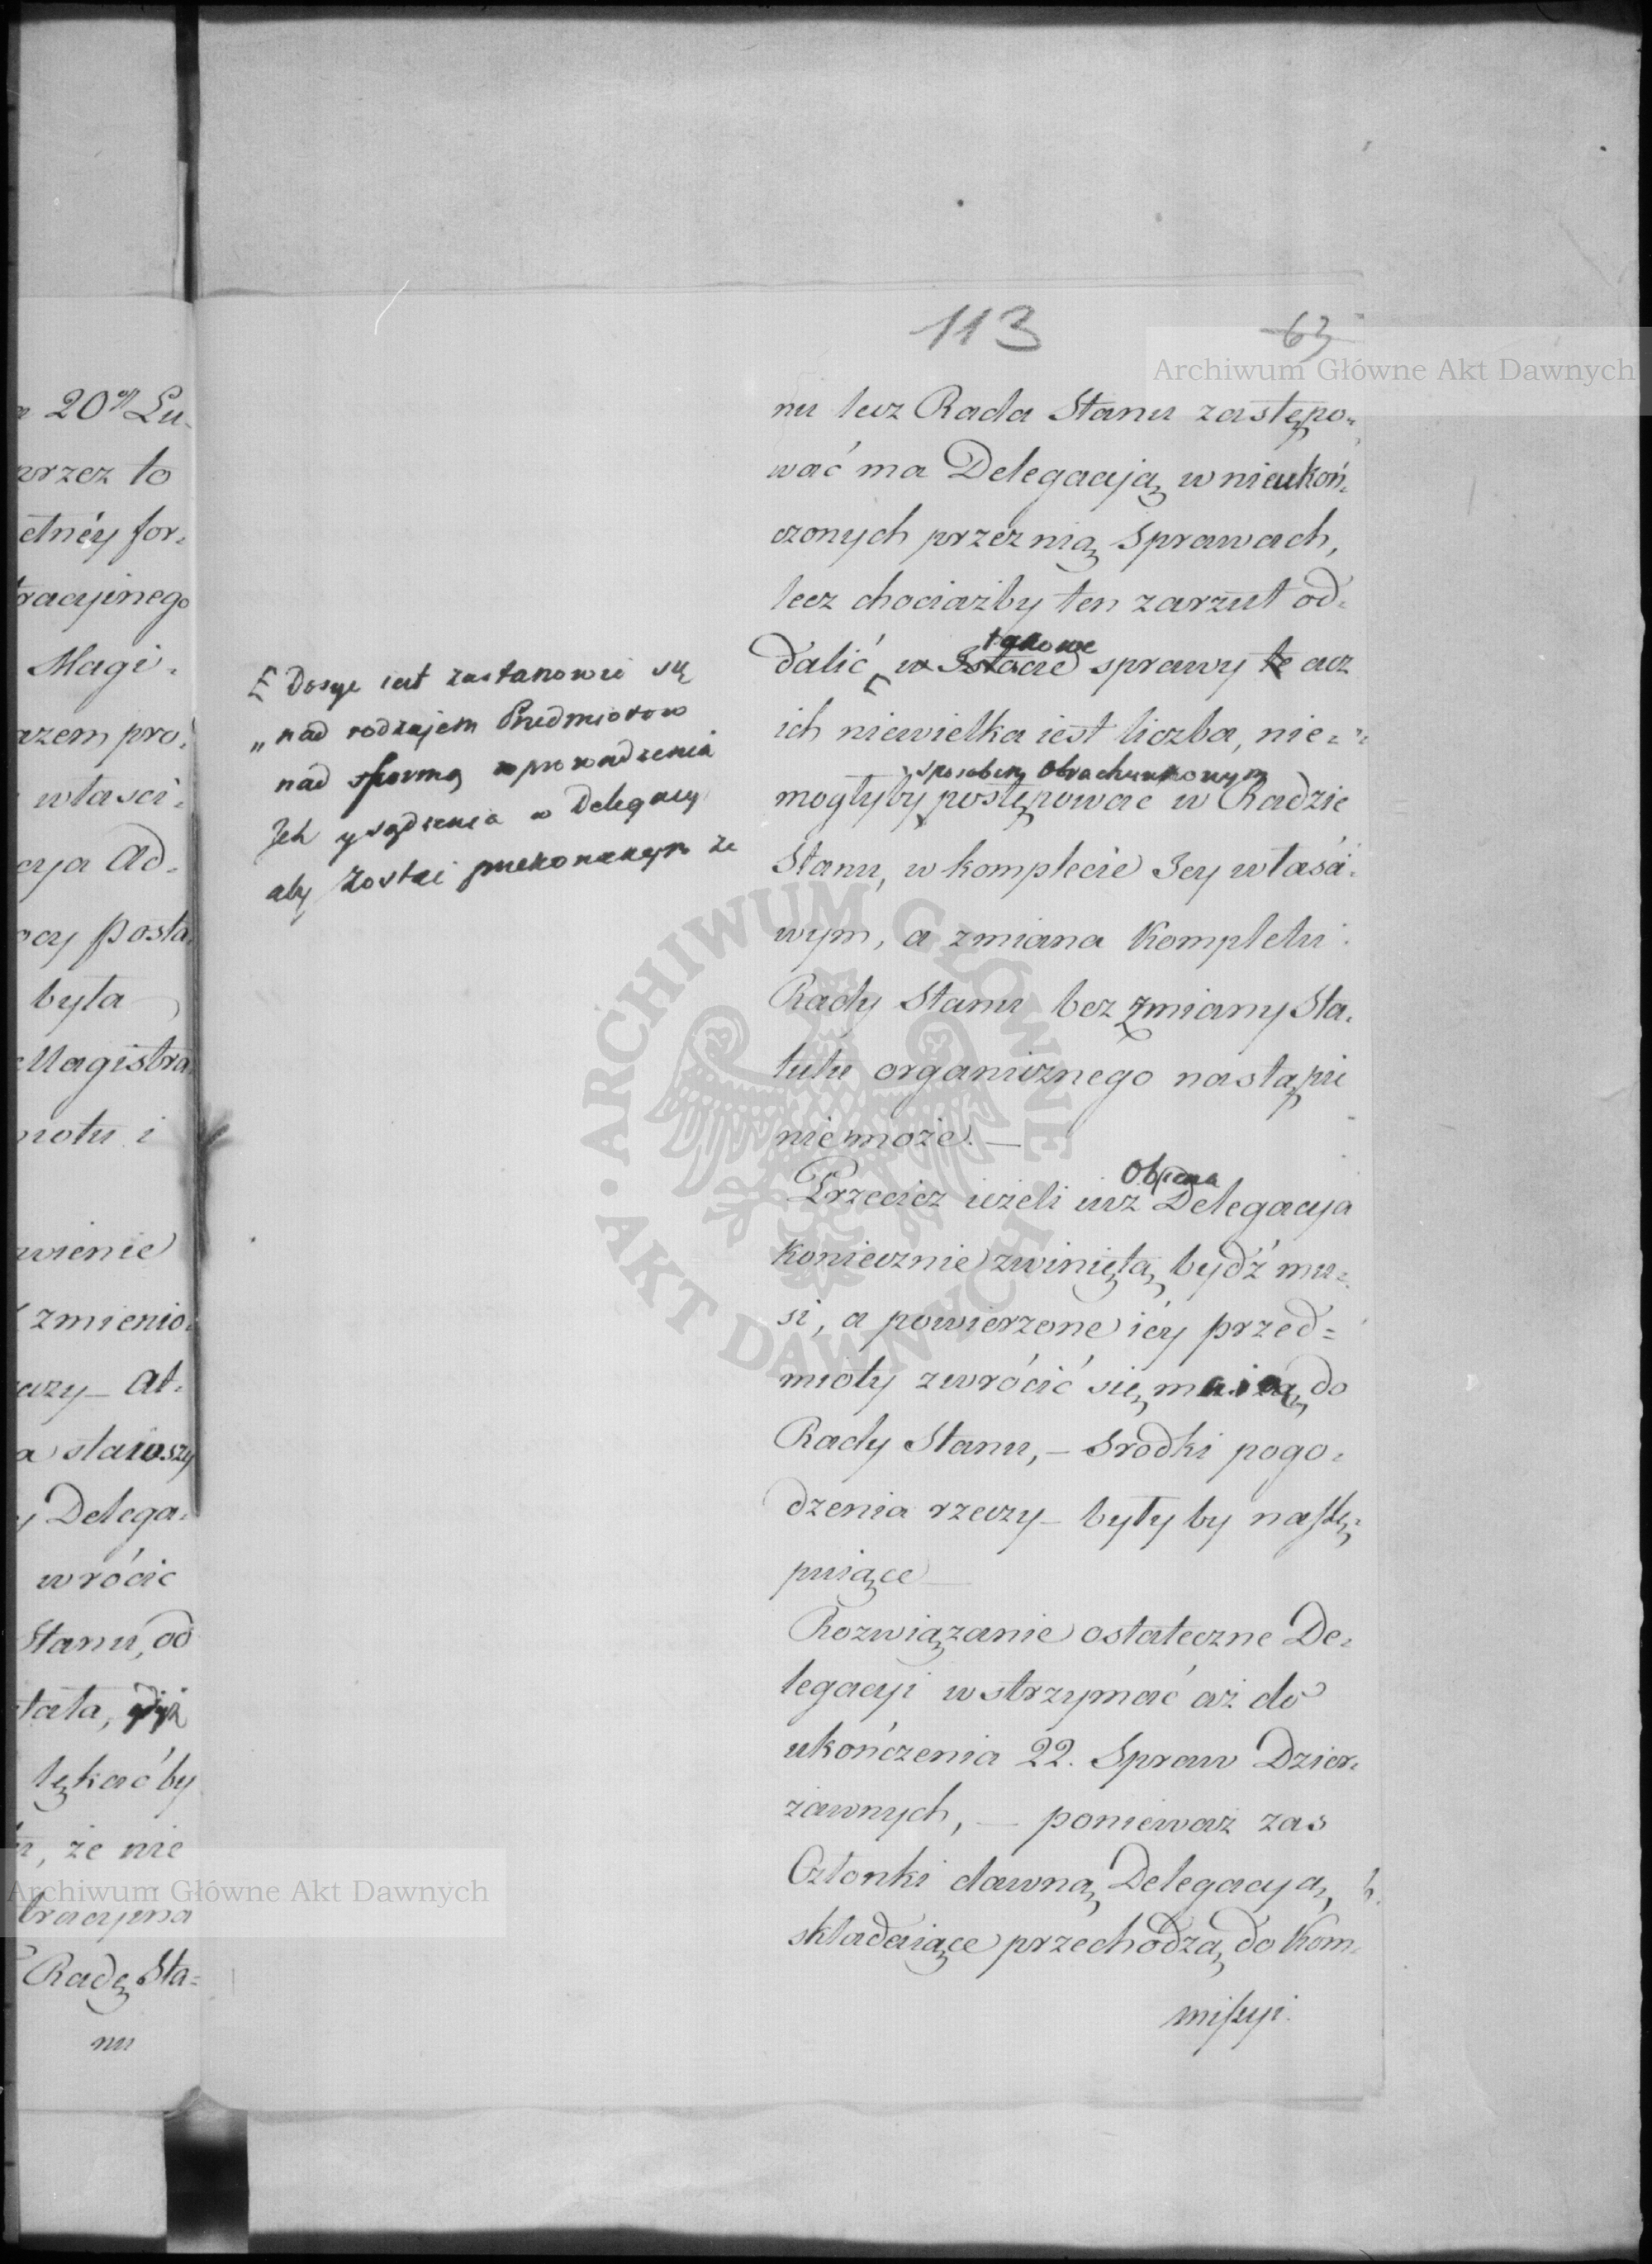 113 63
Archiwum Główne Akt Dawnych
a 20go Lu-
przez to
etnéy for-
tracyjnego
Magi-
razem pro-
własci-
cya Ad-
posta-
była
Magistra
i
wienie
zmienio-
At-
a
y Delega-
wrócic
Stanu, od
stała,
lękać by
że nie
tracyjna
Radę Sta-
nu
Dosyc iest zastanowic się
nad rodzajem Przedmiotow
nad formą wprowadzenia
Jch y sądzenia w Delegacy
aby zostac przekonanym że
nu lecz Rada Stanu zastępo-
wać ma Delegacyją w nieukoń-
czonych przez nią sprawach,
lecz chociażby ten zarzut od-
takowe
dalić w Istocie sprawy te acz
ich niewielka iest liczba, nie-
sposobem Obrachunkowym
mogłyby postępować w Radzie
Stanu, w komplecie Jey właści-
wym, a zmiana Kompletu
Rady Stanu bez zmiany Sta-
tutu organicznego nastąpić
niemoże. —
Obecna
Przecież ieżeli iuż Delegacya
koniecznie zwiniętą bydź mu-
si, a powierzone iéy przed-
mioty zwrócić się maią do
Rady Stanu, — Srodki pogo-
dzenia rzeczy — byłyby nastę-
puiące —
Rozwiązanie ostateczne De-
legacyi wstrzymać aż do
ukończenia 22. Spraw Dzier-
żawnych, — ponieważ zas
Członki dawną Delegacyą,
składaiące przechodzą do Kom-
missyi.
Archiwum Główne Akt Dawnych
ARCHIWUM GŁÓWNE · AKT DAWNYCH ·